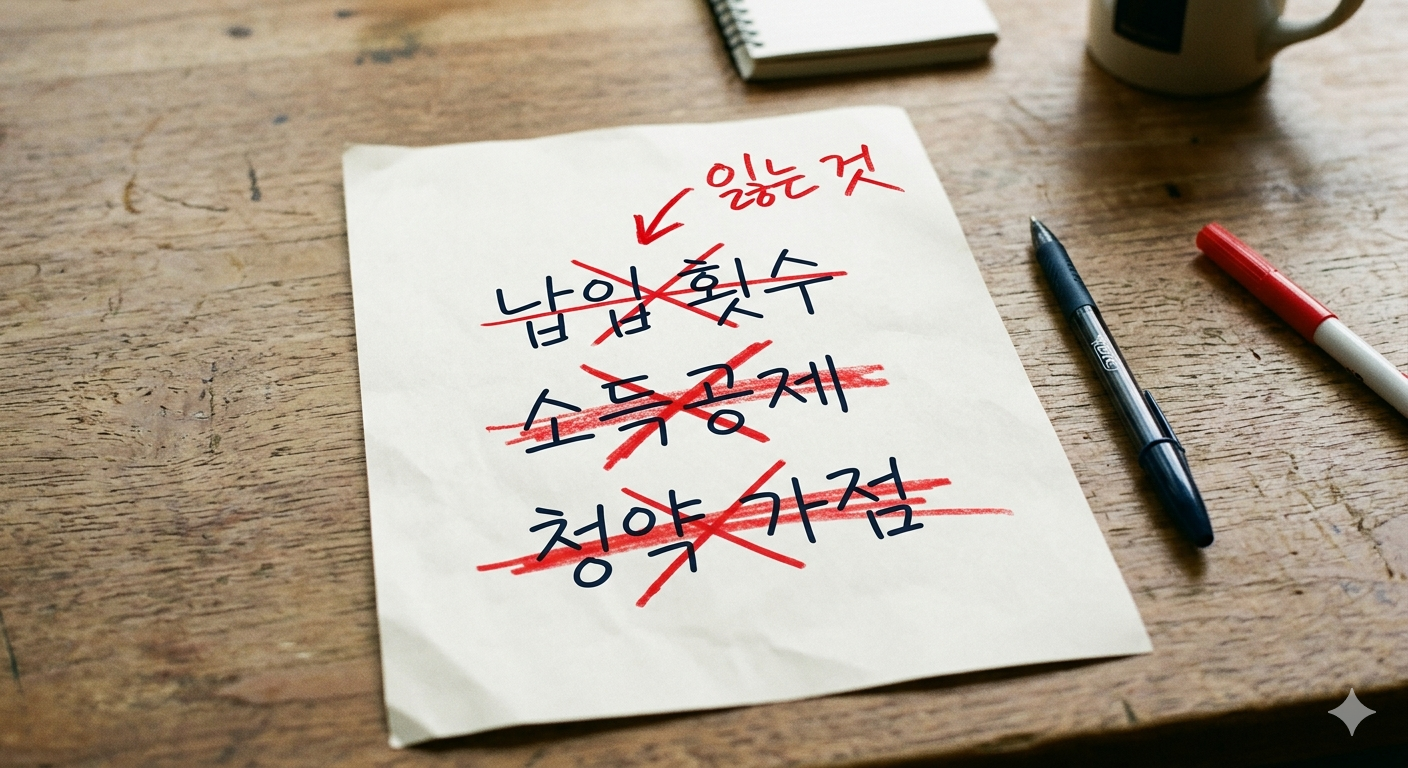 잃는 것
납입 횟수
소득공제
청약 가점